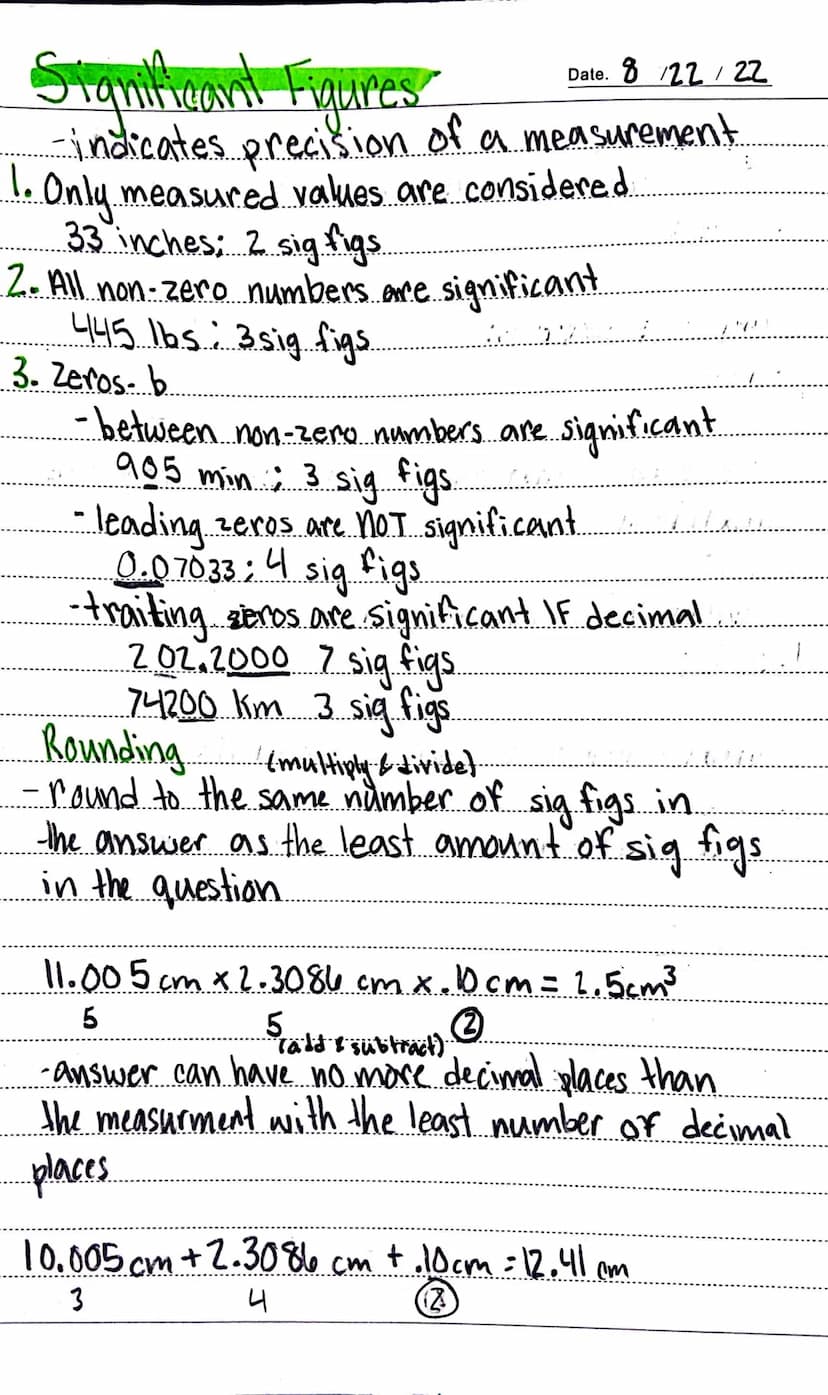 Significant Figures
Date. 8 /22 / 22
-indicates precision of a measurement
1. Only measured values are considered
33 inches; 2 sig figs
2. All non-zero numbers are significant
445 lbs; 3 sig figs
3. Zeros- b
-between non-zero numbers are significant
905 min; 3 sig figs
-leading zeros are NOT significant
0.07033; 4 sig figs
-traiting zeros are significant IF decimal
202.2000 7 sig figs
74200 km 3 sig figs
Rounding (multiply & divide)
-round to the same number of sig figs in
the answer as the least amount of sig figs
in the question
11.005 cm x 2.3086 cm x .10 cm = 2.5cm³
5 5 2
(add & subtract)
-answer can have no more decimal places than
the measurment with the least number of decimal
places
10.005 cm + 2.3086 cm + .10 cm = 12.41 cm
3 4 2